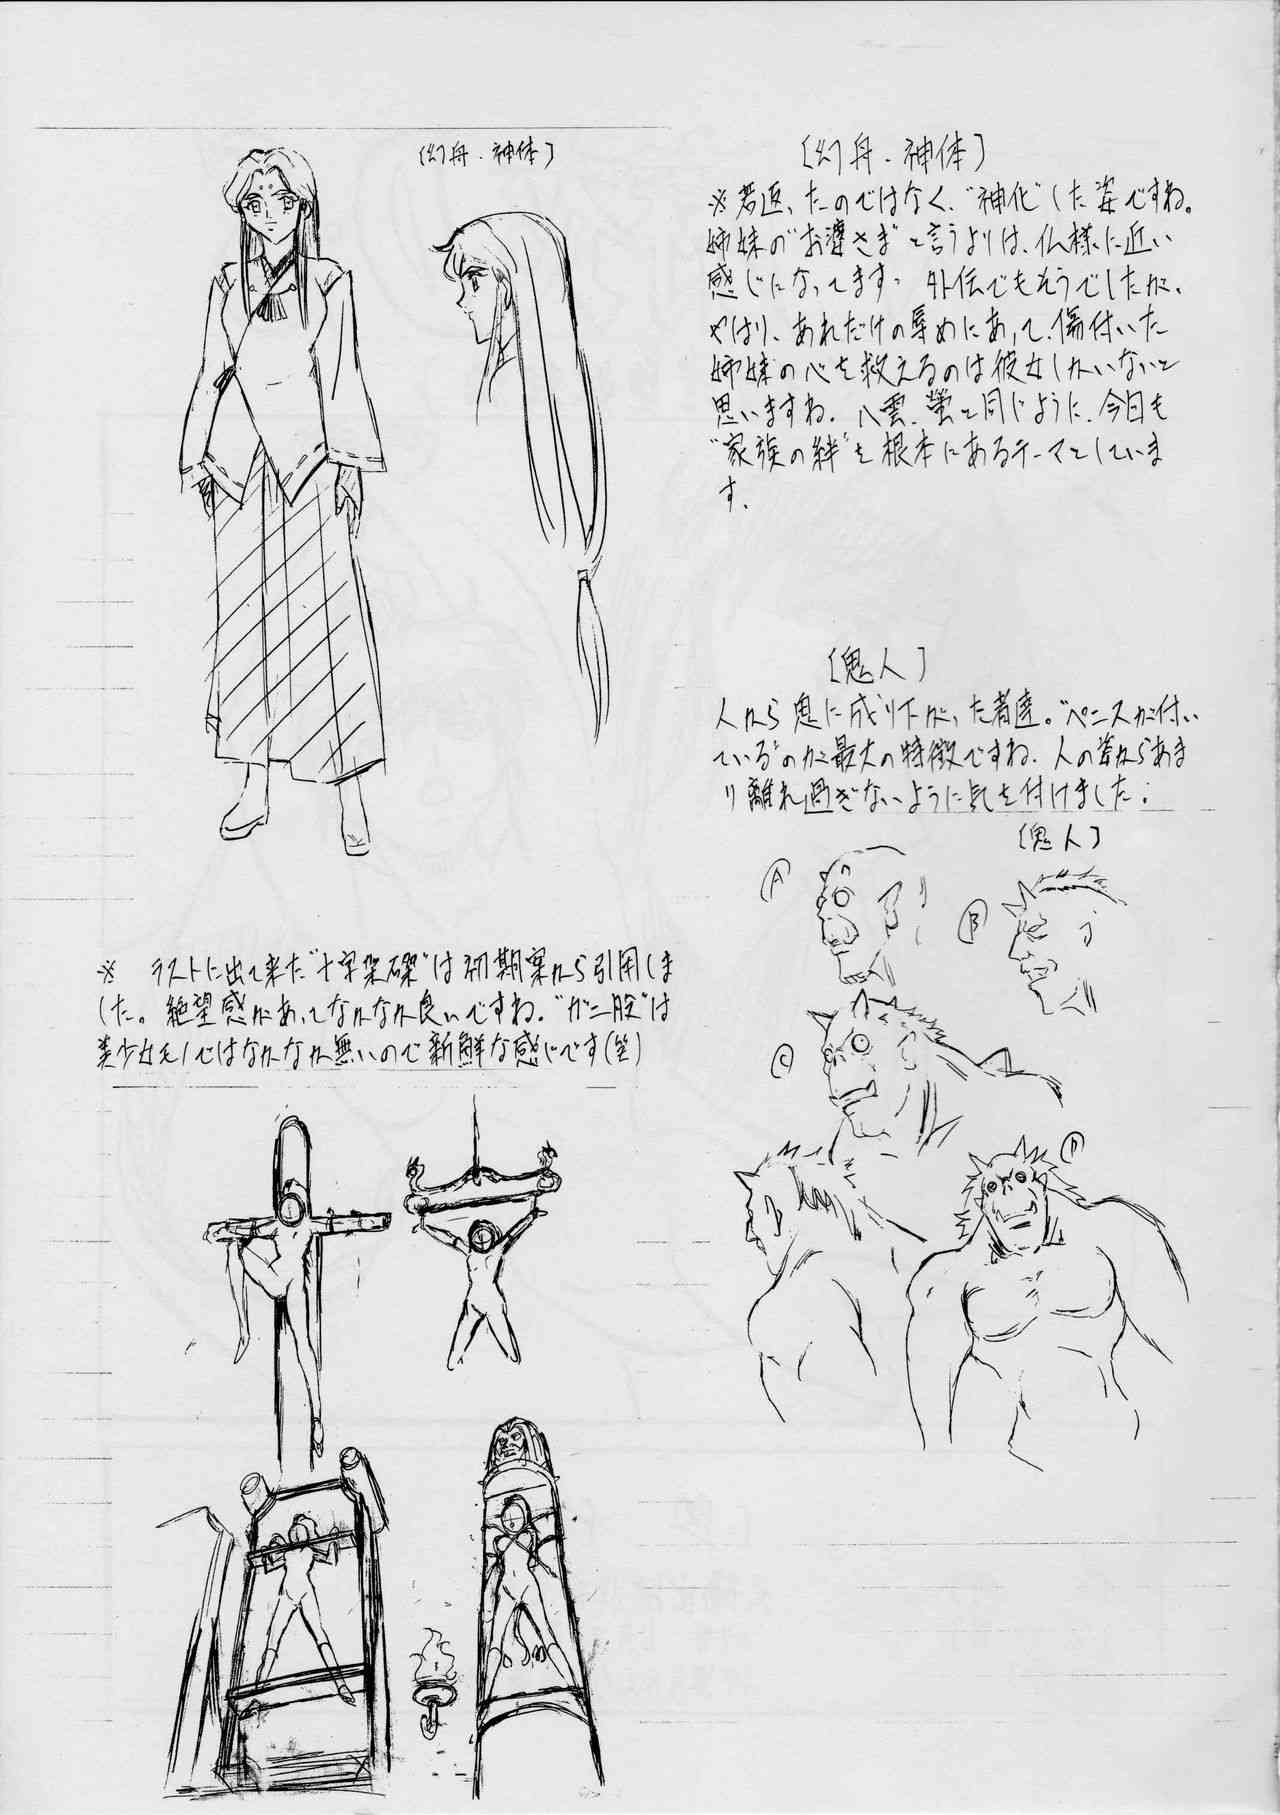 〔幻舟・神体〕
〔幻舟・神体〕
※若返ったのではなく、"神化"した姿ですね。
姉妹の"お婆さま"と言うよりは、仏様に近い
感じになってます。外伝でもそうでしたが、
やはり、あれだけの辱めにあって、傷付いた
姉妹の心を救えるのは彼女しかいないと
思いますね。八雲、蛍と同じように、今日も
"家族の絆"を根本にあるテーマとしていま
す。
〔鬼人〕
人から鬼に成り下がった者達。"ペニスが付い
ている"のが最大の特徴ですね。人の姿からあま
り離れ過ぎないように気を付けました。
〔鬼人〕
A
B
C
D
※ ラストに出て来た"十字架磔"は初期案から引用しま
した。絶望感があってなかなか良いですね。"ガニ股"は
美少女モノではなかなか無いので新鮮な感じです(笑)